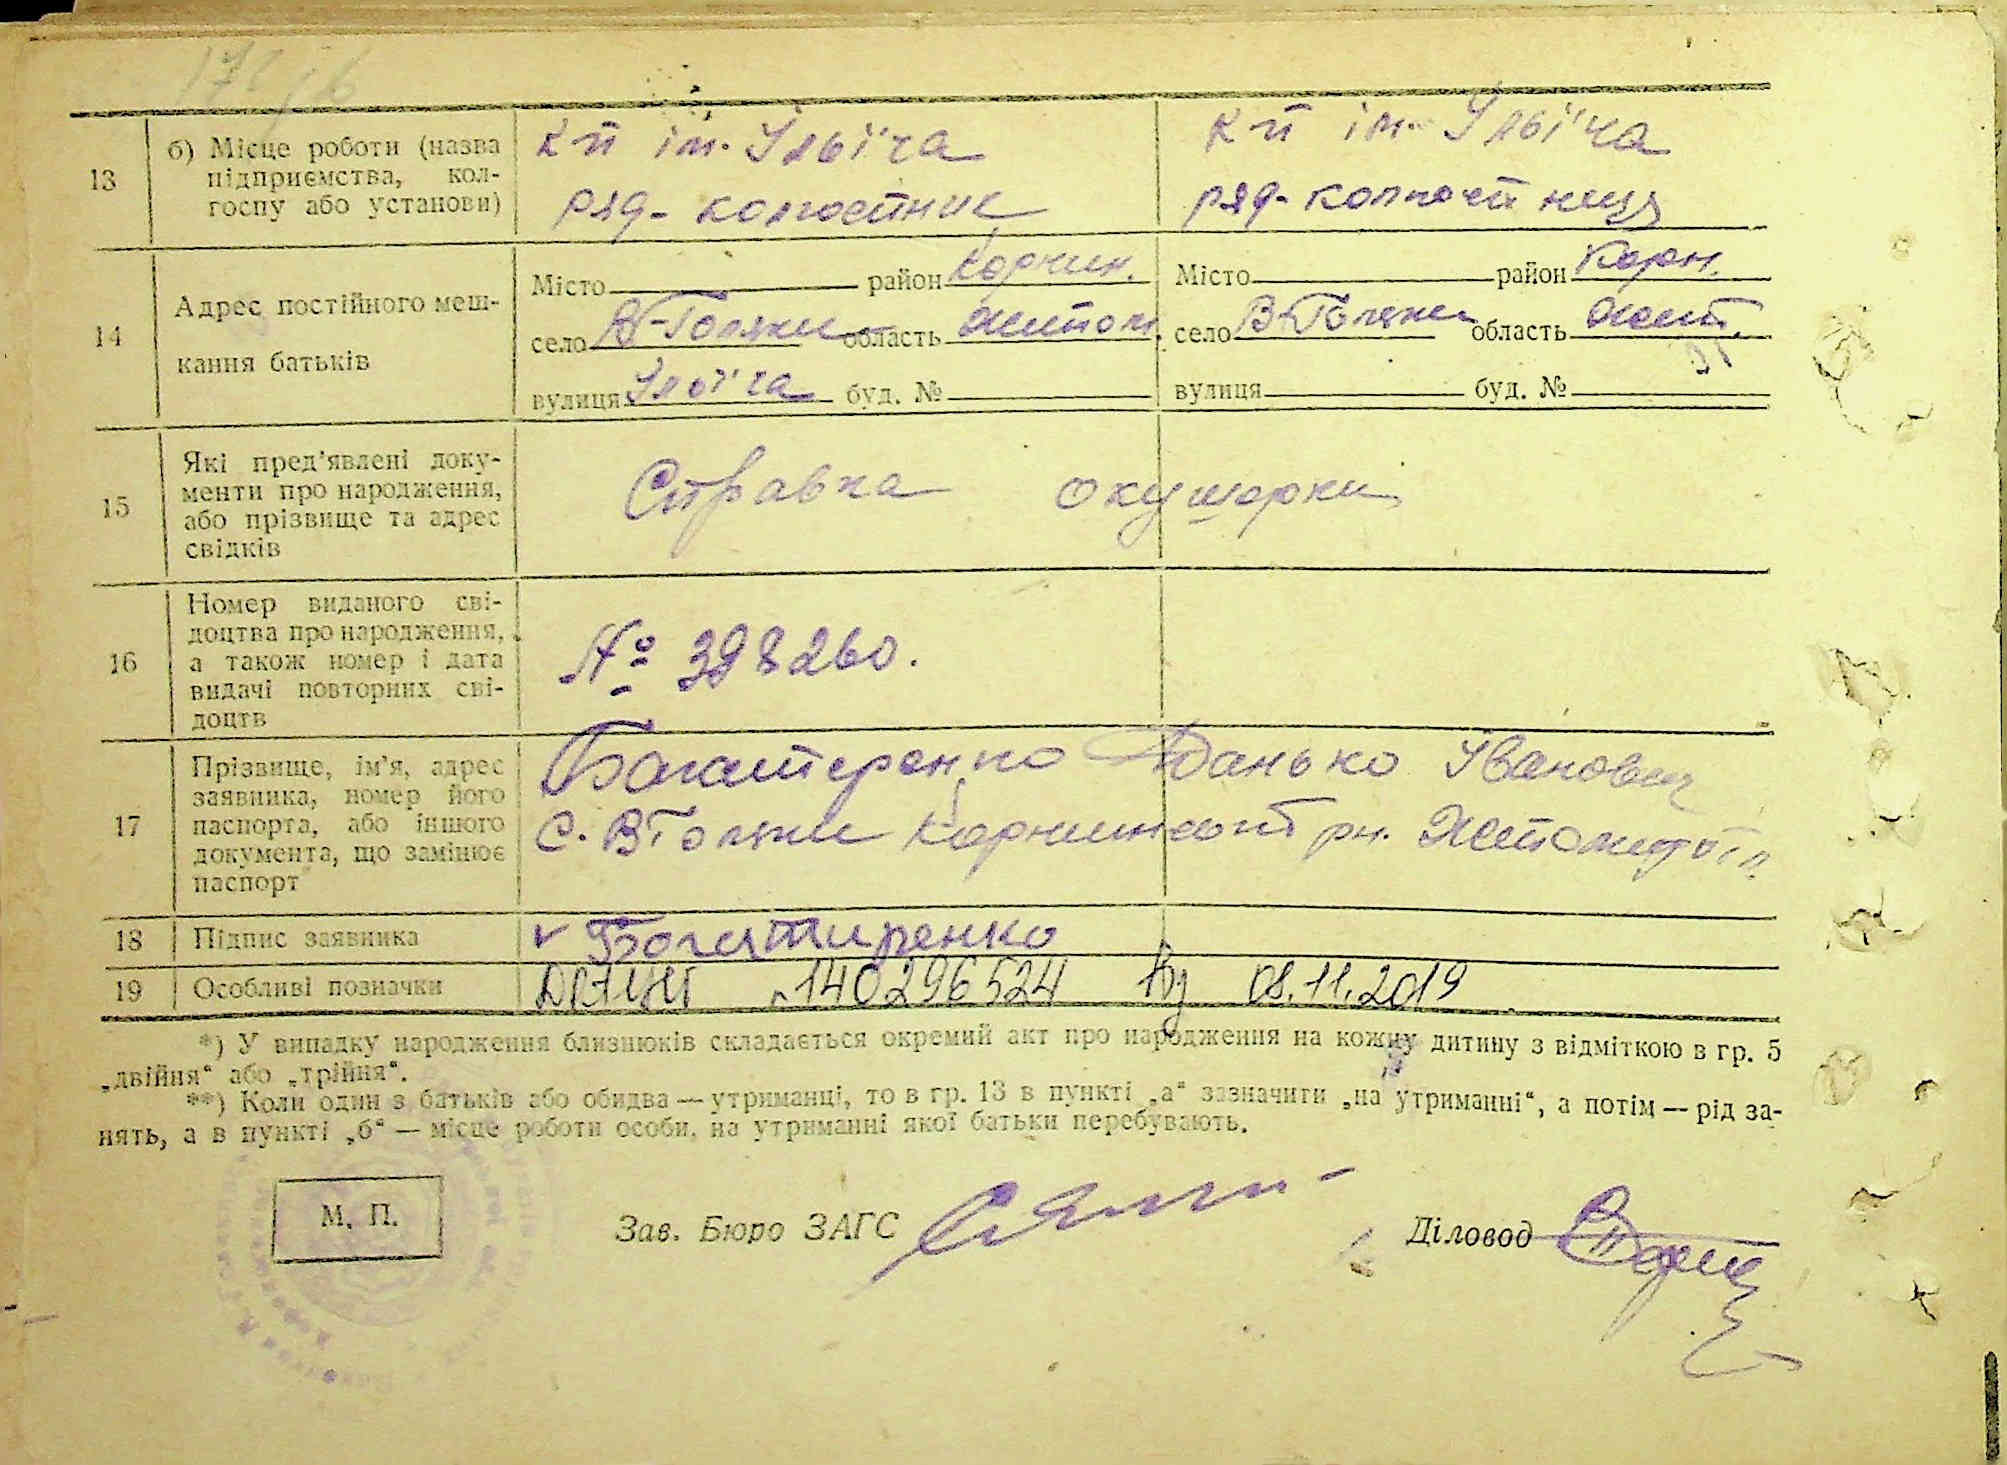 13
б) Місце роботи (назва підприємства, колгоспу або установи)
к п ім. Ілліча
ряд- колгоспник
к п ім. Ілліча
ряд- колгоспниця
14
Адрес постійного мешкання батьків
Місто район Корнин.
село В-Голяки область Житом.
вулиця Ілліча буд. №
Місто район Корн.
село В-Голяки область Жит.
вулиця буд. №
15
Які пред'явлені документи про народження, або прізвище та адрес свідків
Справка окушерки
16
Номер виданого свідоцтва про народження, а також номер і дата видачі повторних свідоцтв
№ 398260.
17
Прізвище, ім'я, адрес заявника, номер його паспорта, або іншого документа, що замінює паспорт
Багатеренко Данько Іванович
С. В Голяки Корнинський рн. Житомир обл
18
Підпис заявника
v Богатиренко
19
Особливі позначки
140296524 від 08.11.2019
*) У випадку народження близнюків складається окремий акт про народження на кожну дитину з відміткою в гр. 5
„двійня“ або „трійня“.
**) Коли один з батьків або обидва — утриманці, то в гр. 13 в пункті „а“ зазначити „на утриманні“, а потім — рід за-
нять, а в пункті „б“ — місце роботи особи, на утриманні якої батьки перебувають.
М. П.
Зав. Бюро ЗАГС
Діловод